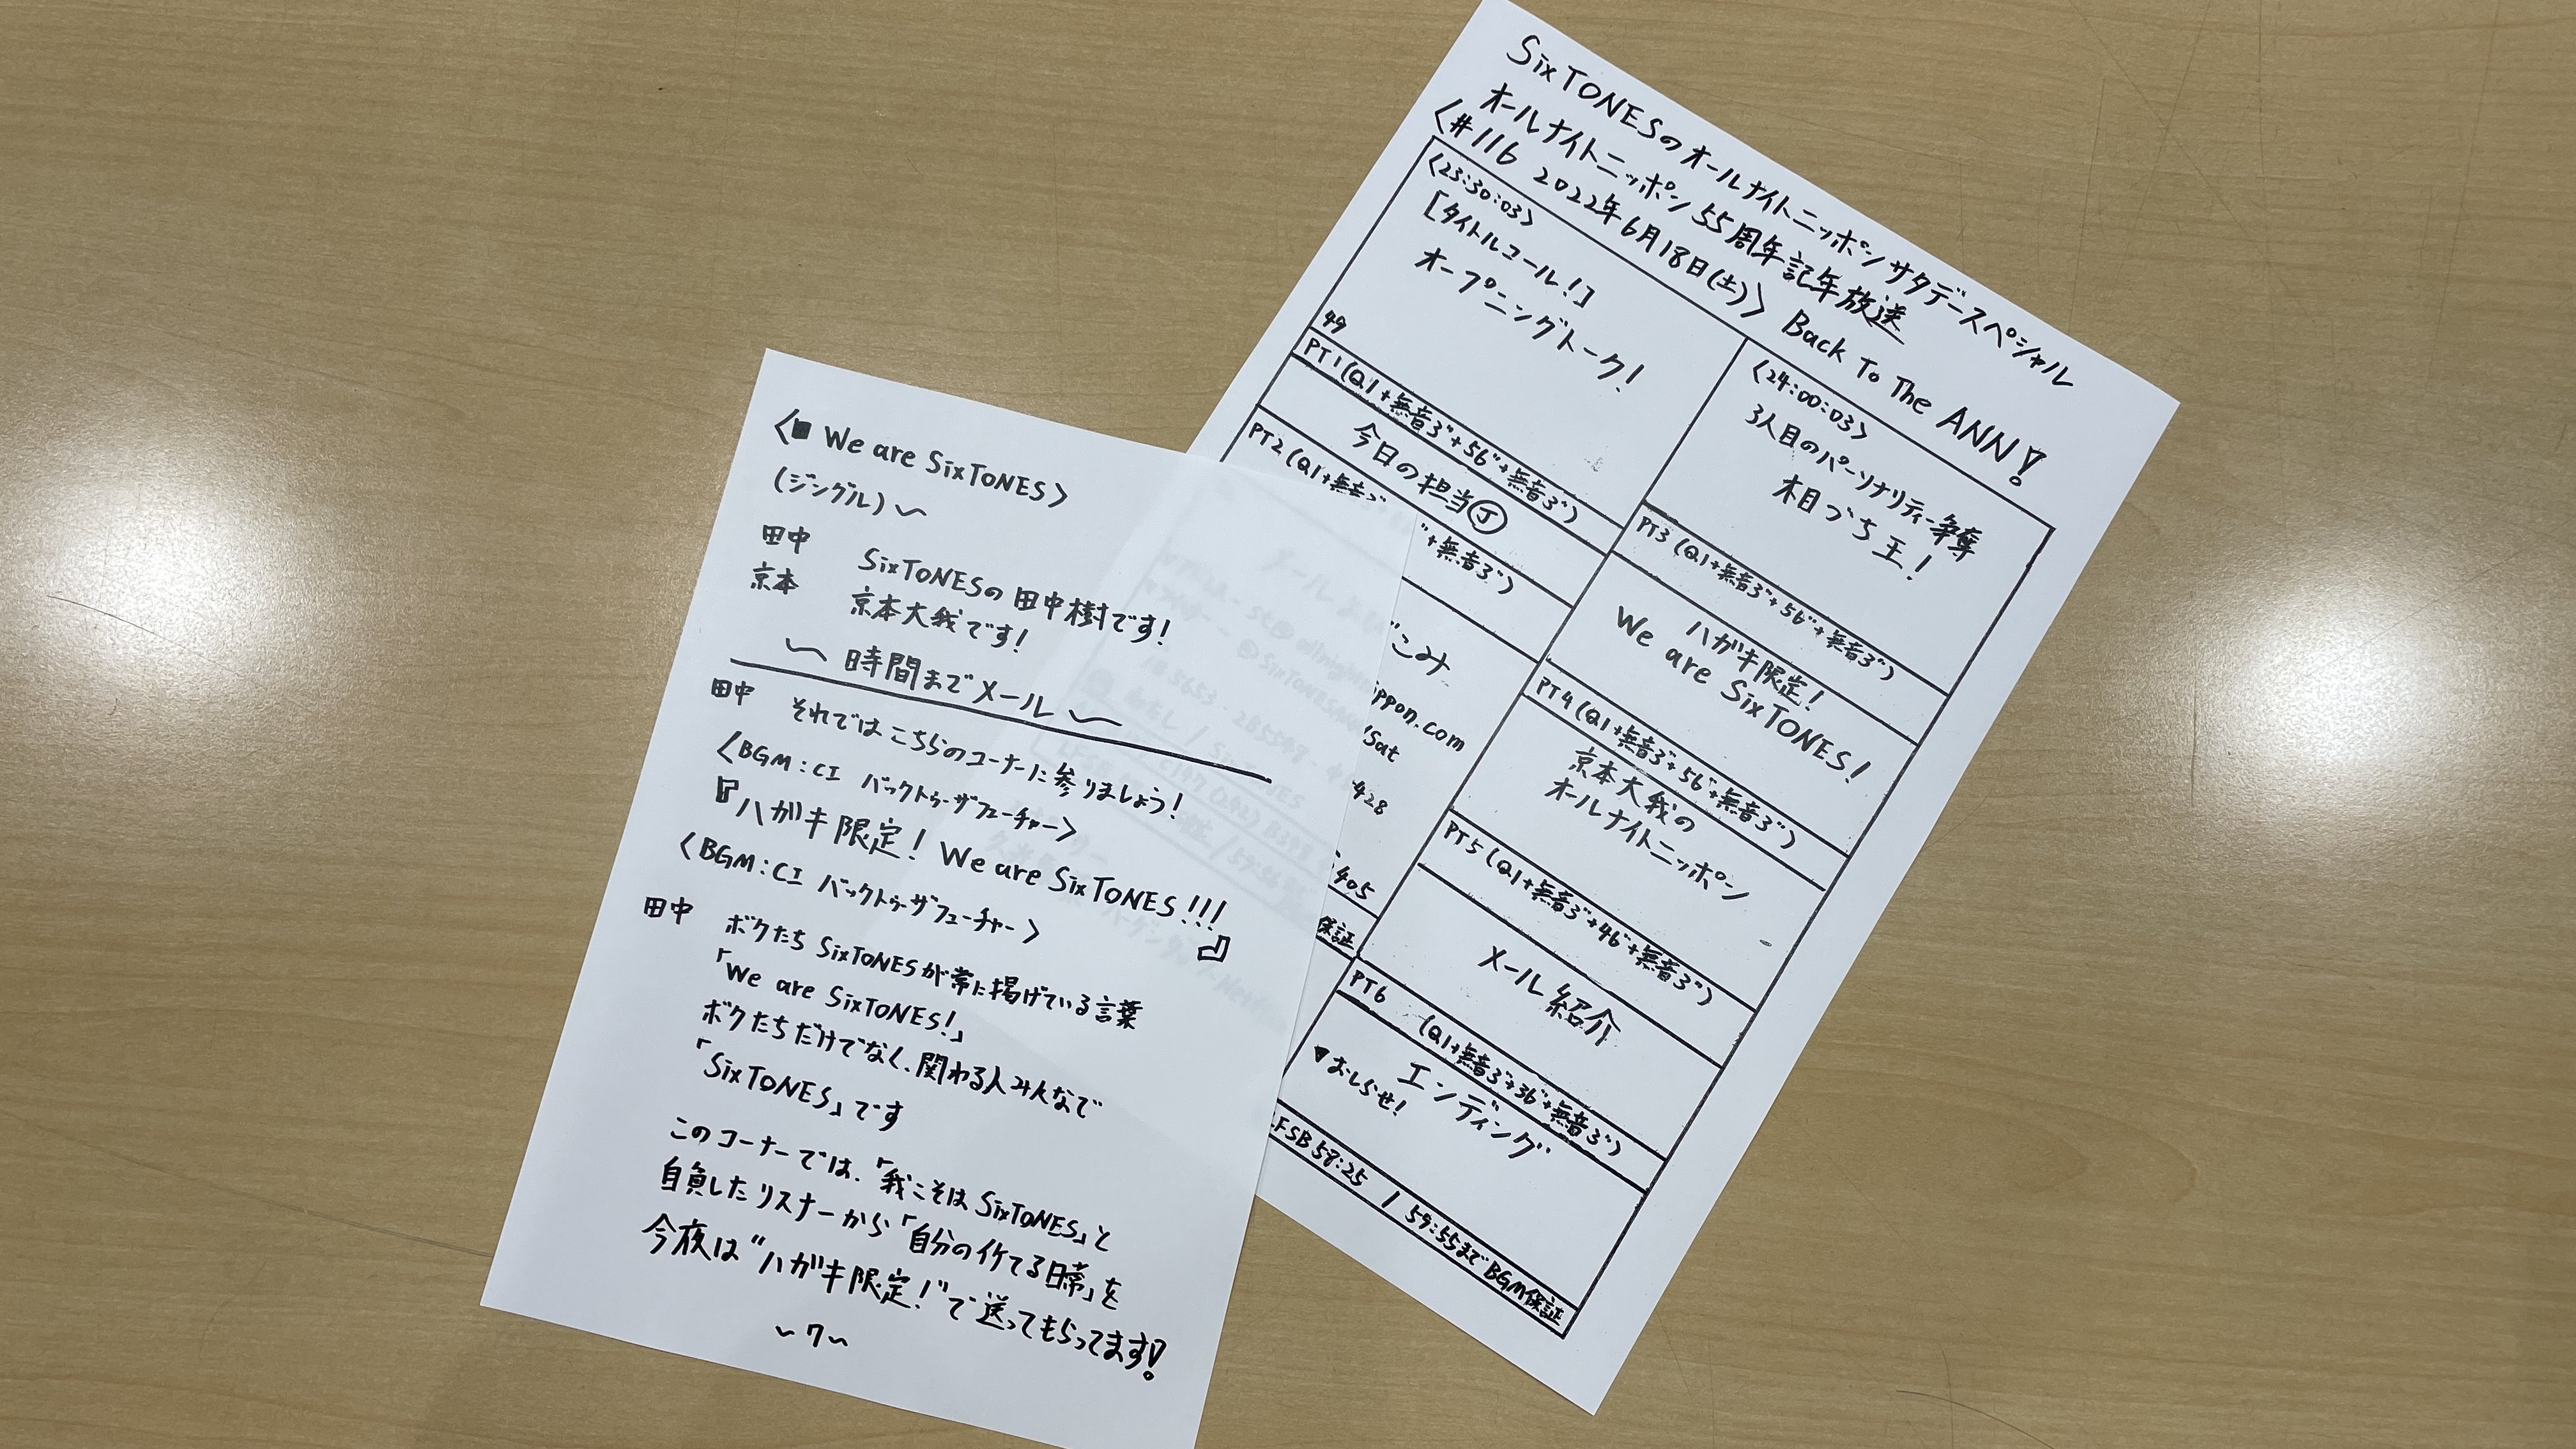 <■ We are SixTONES>
(ジングル)〜
田中 SixTONESの田中樹です!
京本 京本大我です!
〜 時間までメール 〜
田中 それではこちらのコーナーに参りましょう!
<BGM:CI バックトゥーザフューチャー>
『ハガキ限定! We are SixTONES!!!』
<BGM:CI バックトゥーザフューチャー>
田中 ボクたち SixTONESが常に掲げている言葉
「We are SixTONES!」
ボクたちだけでなく、関わる人みんなで
「SixTONES」です
このコーナーでは、「我こそは SixTONES」と
自負したリスナーから「自分のイケてる日常」を
今夜は"ハガキ限定!"で送ってもらってます!
〜7〜
SixTONESのオールナイトニッポンサタデースペシャル
オールナイトニッポン55周年記年放送
<#116 2022年6月18日(土)> Back To The ANN!
<23:30:03>
[タイトルコール!]
オープニングトーク!
49
PT1(Q1+無音3"+56"+無音3")
今日の担当Ⓙ
PT2(Q1+無音3" "+無音3")
こみ
ppon.com
/Sat
428
405
保証
<24:00:03>
3人目のパーソナリティー争奪
木目づち王!
PT3(Q1+無音3"+56"+無音3")
ハガキ限定!
We are SixTONES!
PT4(Q1+無音3"+56"+無音3")
京本大我の
オールナイトニッポン
PT5(Q1+無音3"+46"+無音3")
メール紹介
PT6 (Q1+無音3"+36"+無音3")
エンディング
▼おしらせ!
FSB58:25 / 59:55までBGM保証